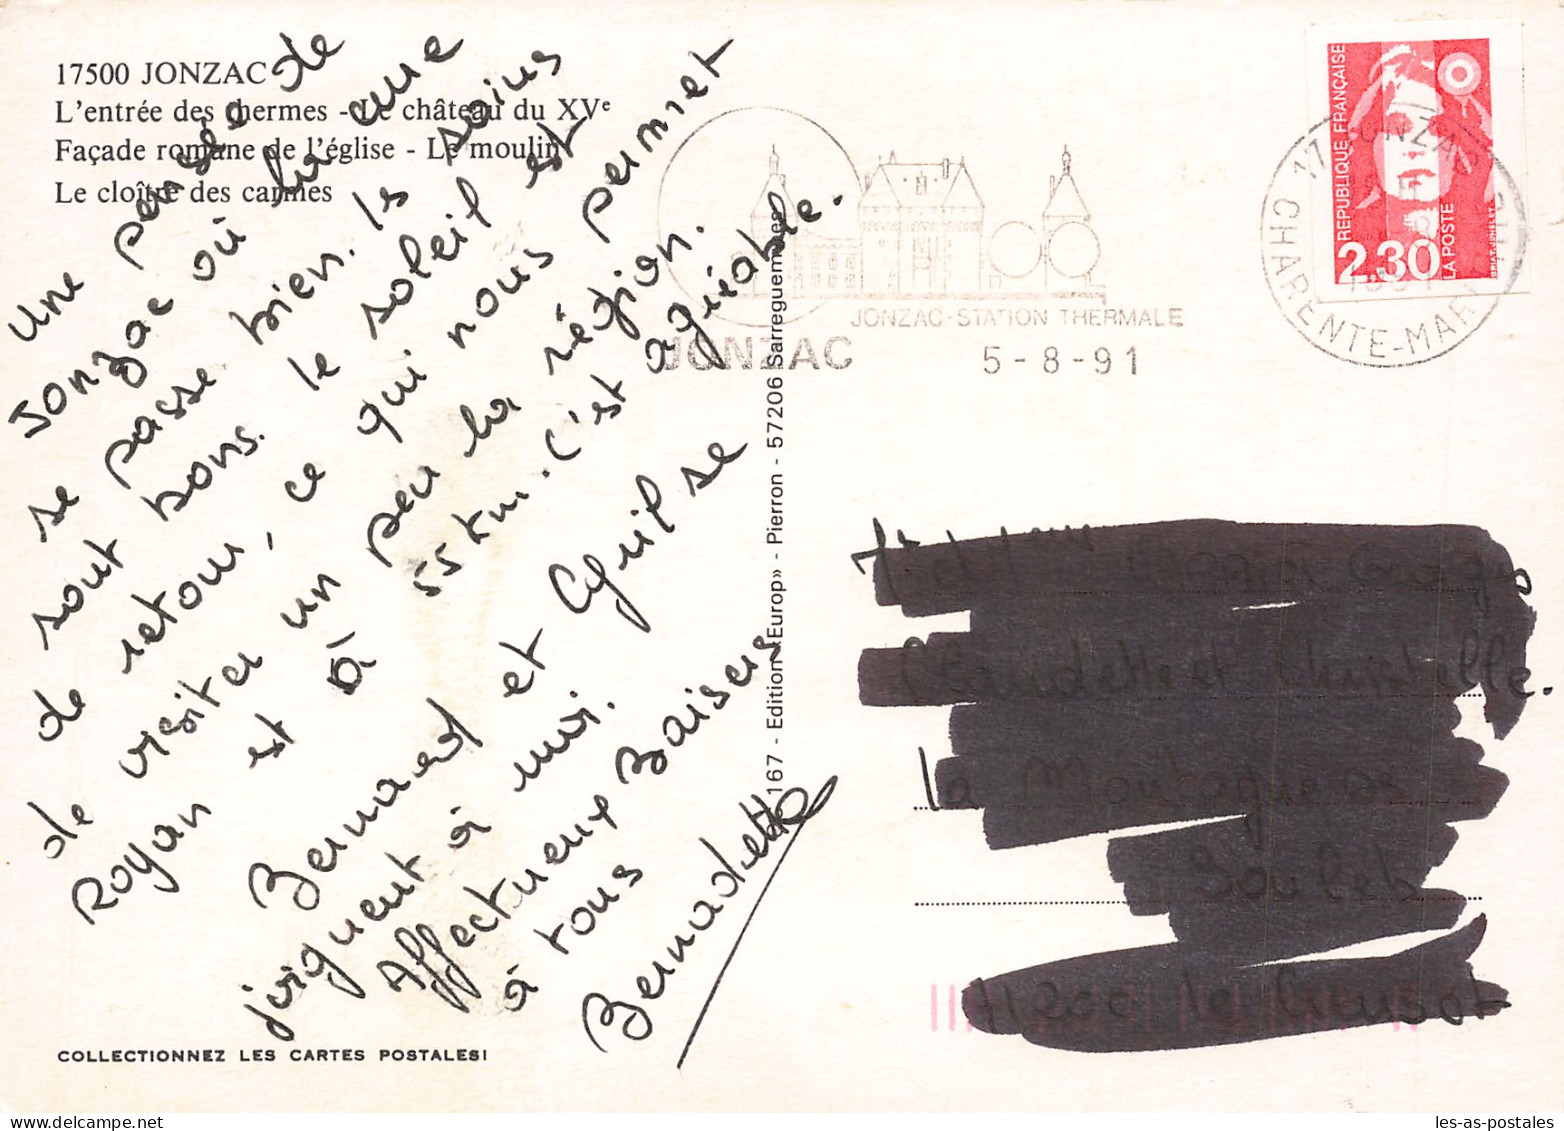 17500 JONZAC
L'entrée des thermes - Le château du XVe
Façade romane de l'église - Le moulin
Le cloître des carmes
Une pensée de
Jonzac où la cure
se passe bien. les soins
sont bons. le soleil est
de retour, ce qui nous permet
de visiter un peu la région.
Royan est à 55 km. C'est agréable.
Bernard et Cyril se
joignent à moi.
Affectueux Baisers
à tous
Bernadette
COLLECTIONNEZ LES CARTES POSTALES!
167 - Edition «Europ» - Pierron - 57206 Sarreguemines
JONZAC-STATION THERMALE
JONZAC 5-8-91
17 JONZAC
CHARENTE-MARITIME
REPUBLIQUE FRANÇAISE
2,30
LA POSTE
les-as-postales